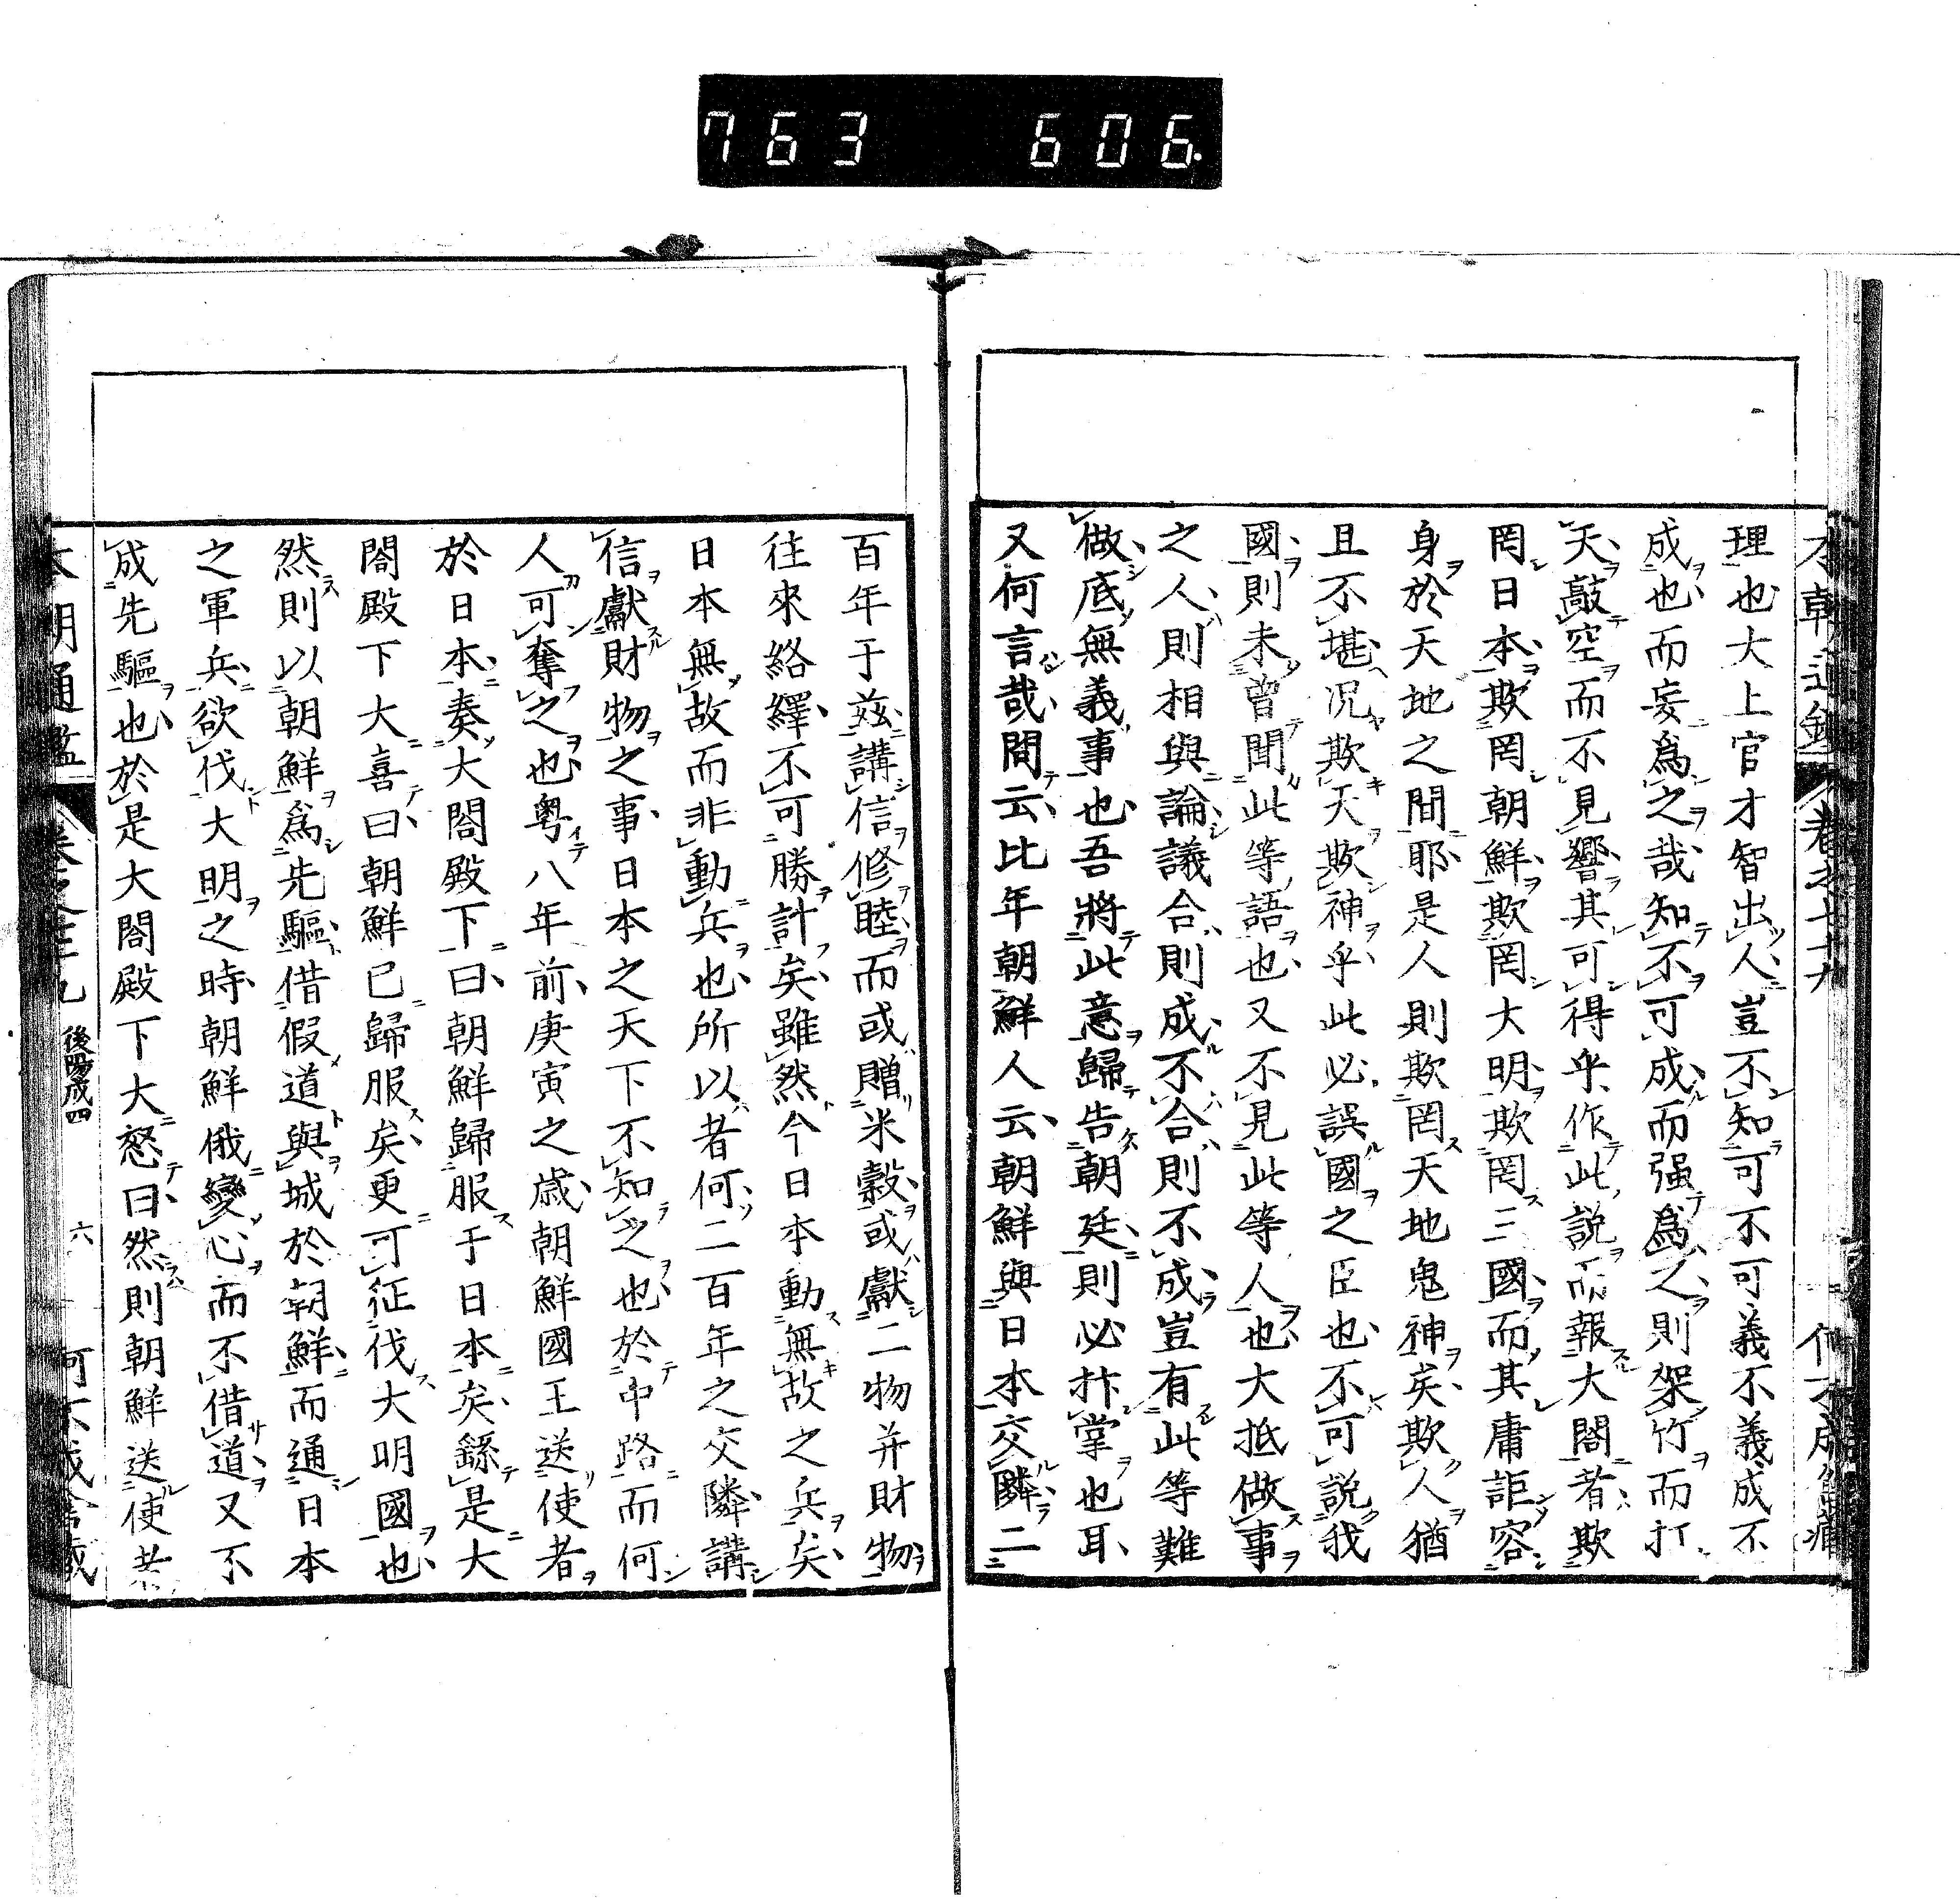 763 606.
理也大上官才智出人豈不知可不可義不義成不
成也而妄爲之哉知不可成而强爲之則架竹而打
天敲空而不見響其可得乎作此説而報大閤者欺
罔日本欺罔朝鮮欺罔大明欺罔三國而其庸詎容
身於天地之間耶是人則欺罔天地鬼神矣欺人猶
且不堪况欺天欺神乎此必誤國之臣也不可説我
國則未曽聞此等語也又不見此等人也大抵做事
之人則相與論議合則成不合則不成豈有此等難
做底無義事也吾將此意歸告朝廷則必抃掌也耳
又何言哉間云比年朝鮮人云朝鮮與日本交隣二
百年于兹講信修睦而或贈米穀或獻二物并財物
往來絡繹不可勝計矣雖然今日本動無故之兵矣
日本無故而非動兵也所以者何二百年之交隣講
信獻財物之事日本之天下不知之也於中路而何
人可奪之也粤八年前庚寅之歳朝鮮國王送使者
於日本奏大閤殿下曰朝鮮歸服于日本矣繇是大
閤殿下大喜曰朝鮮已歸服矣更可征伐大明國也
然則以朝鮮爲先驅借假道與城於朝鮮而通日本
之軍兵欲伐大明之時朝鮮俄變心而不借道又不
成先驅也於是大閤殿下大怒曰然則朝鮮送使者
本朝通鑑 卷之 九 後陽成四 六